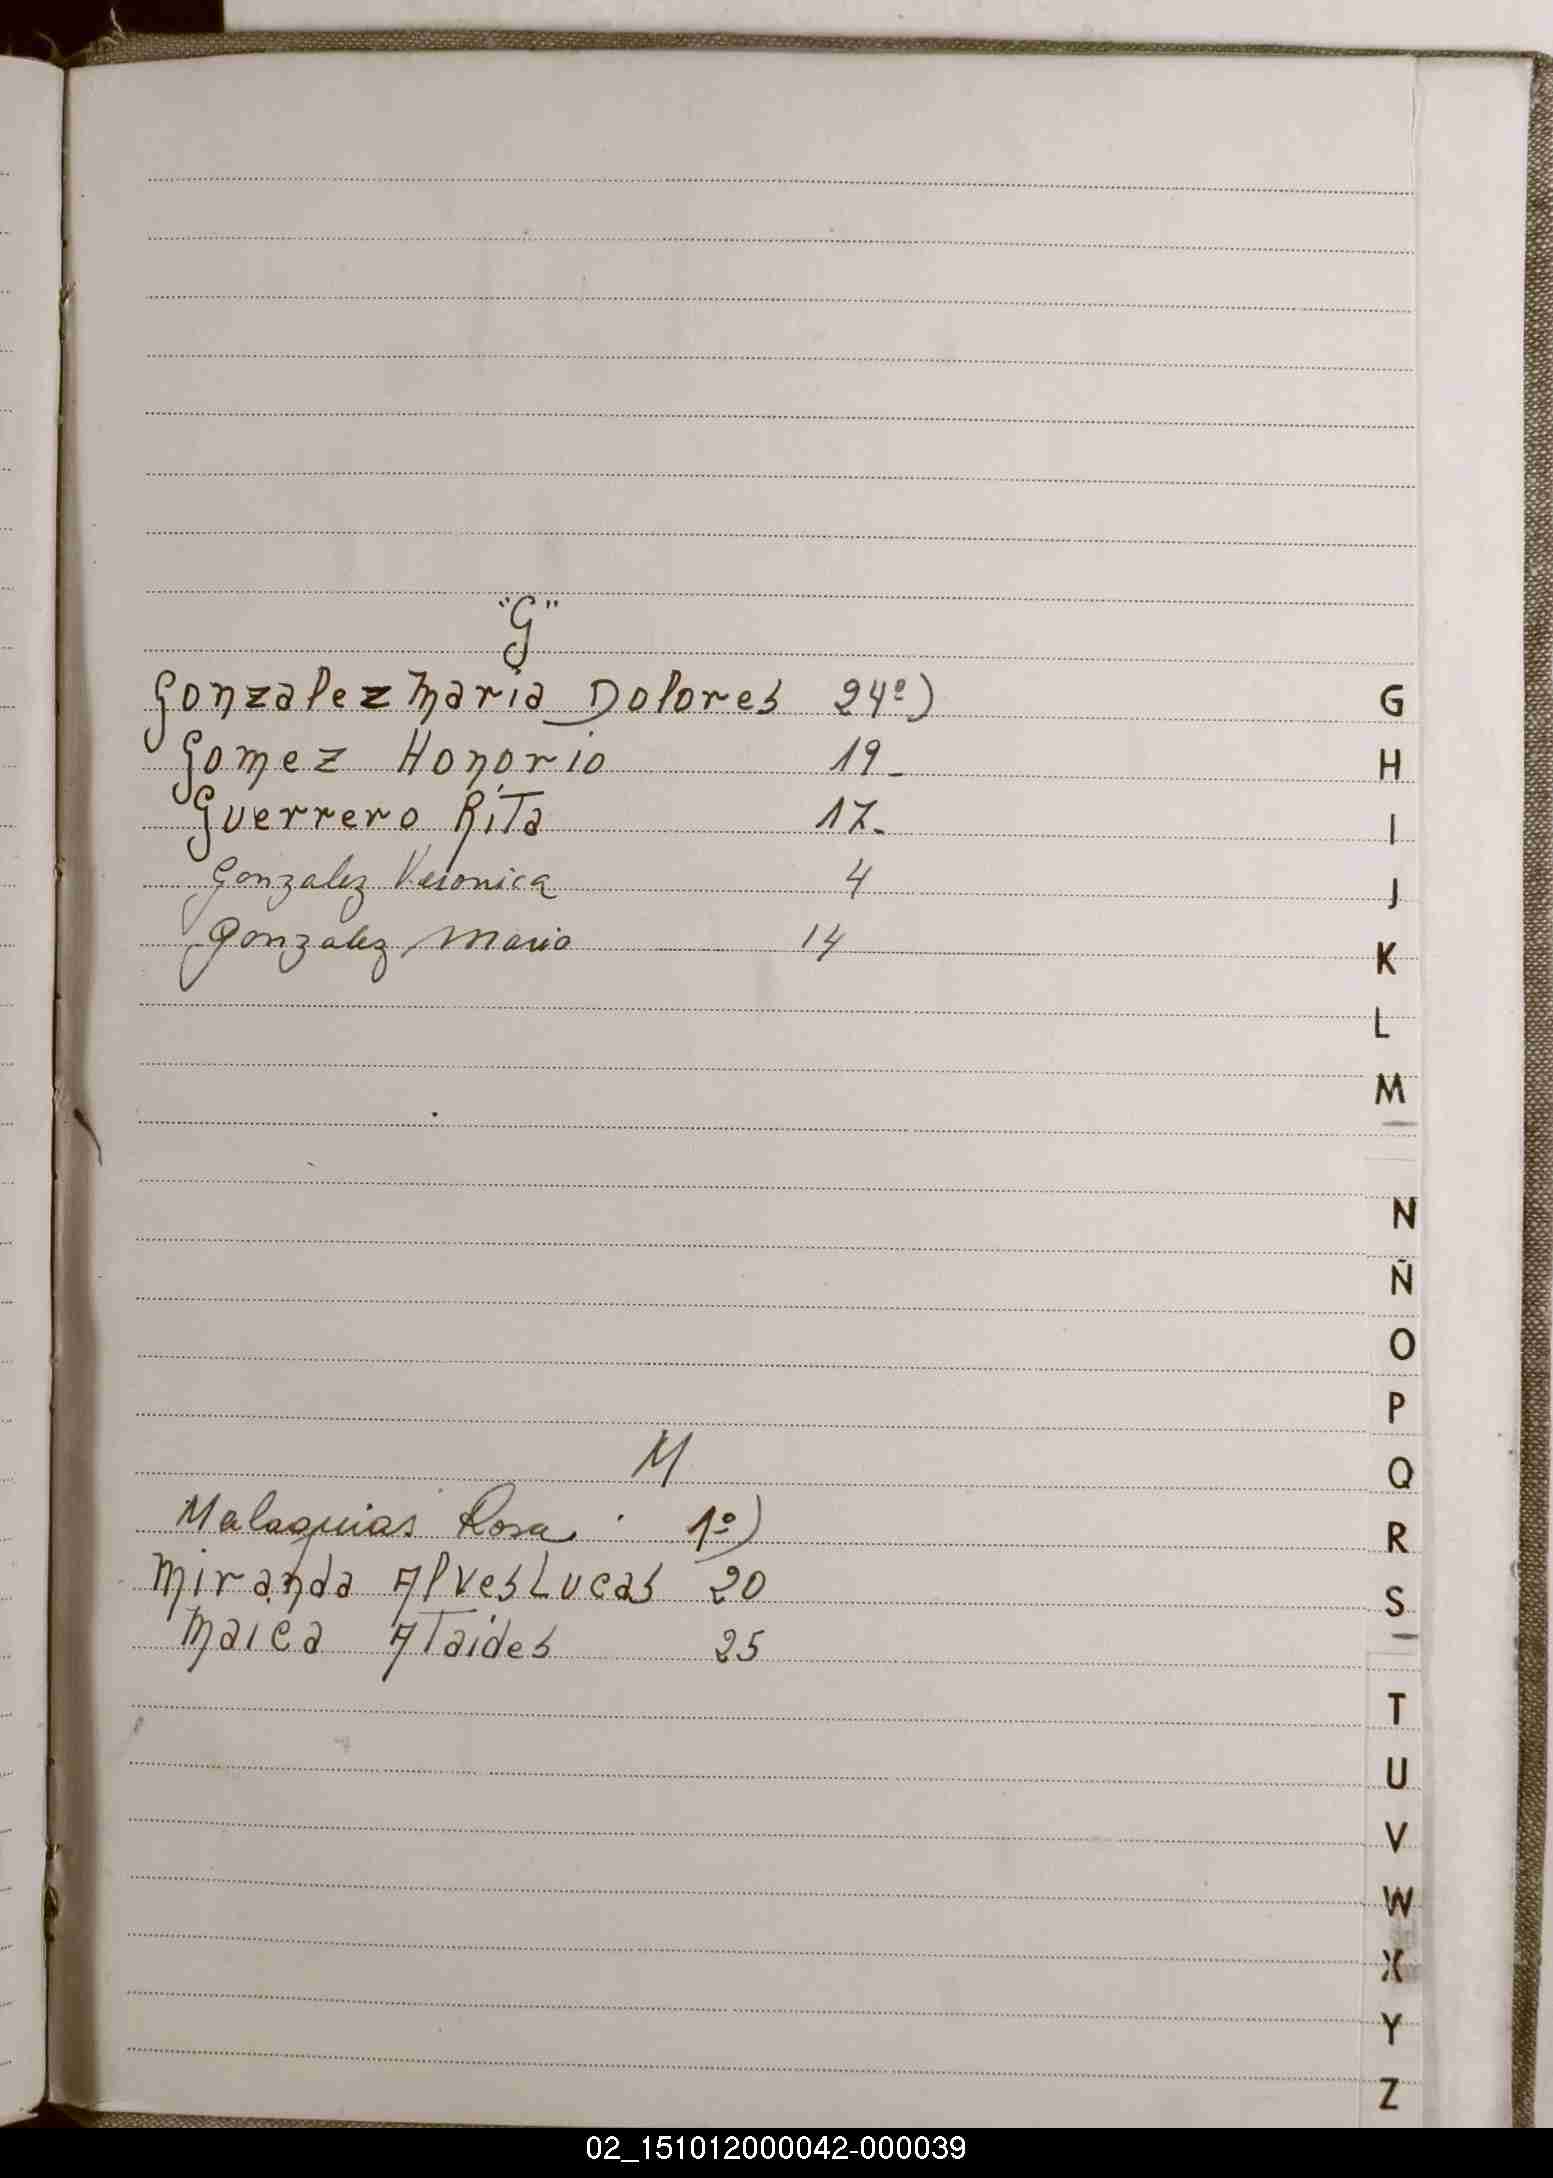 "G"
Gonzalez Maria Dolores 24º)
Gomez Honorio 19-
Guerrero Rita 17-
Gonzalez Veronica 4
Gonzalez Mario 14
M
Malaquias Rosa 1º)
Miranda Alves Lucas 20
Maica Ataides 25
G
H
I
J
K
L
M
N
Ñ
O
P
Q
R
S
T
U
V
W
X
Y
Z
02_151012000042-000039